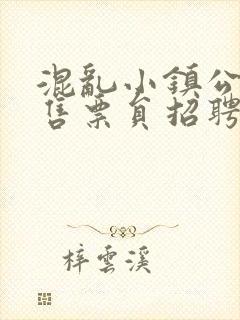 混亂小鎮公
售票員招聘
梓雲溪